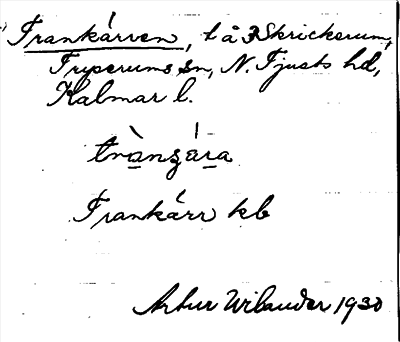 Trankärren, t å 3 Skrickerum,
Tryserums sn, N. Tjusts hd,
Kalmar l.
trànʒára
Trankärr kb
Artur Wilander 1930